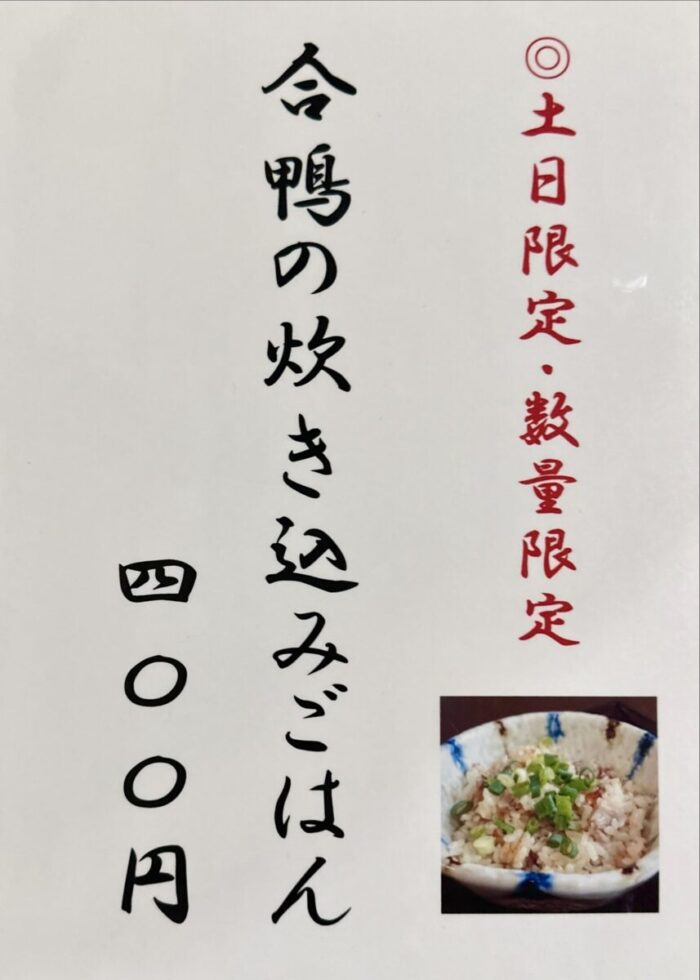 ◎土日限定・数量限定
合鴨の炊き込みごはん
四〇〇円